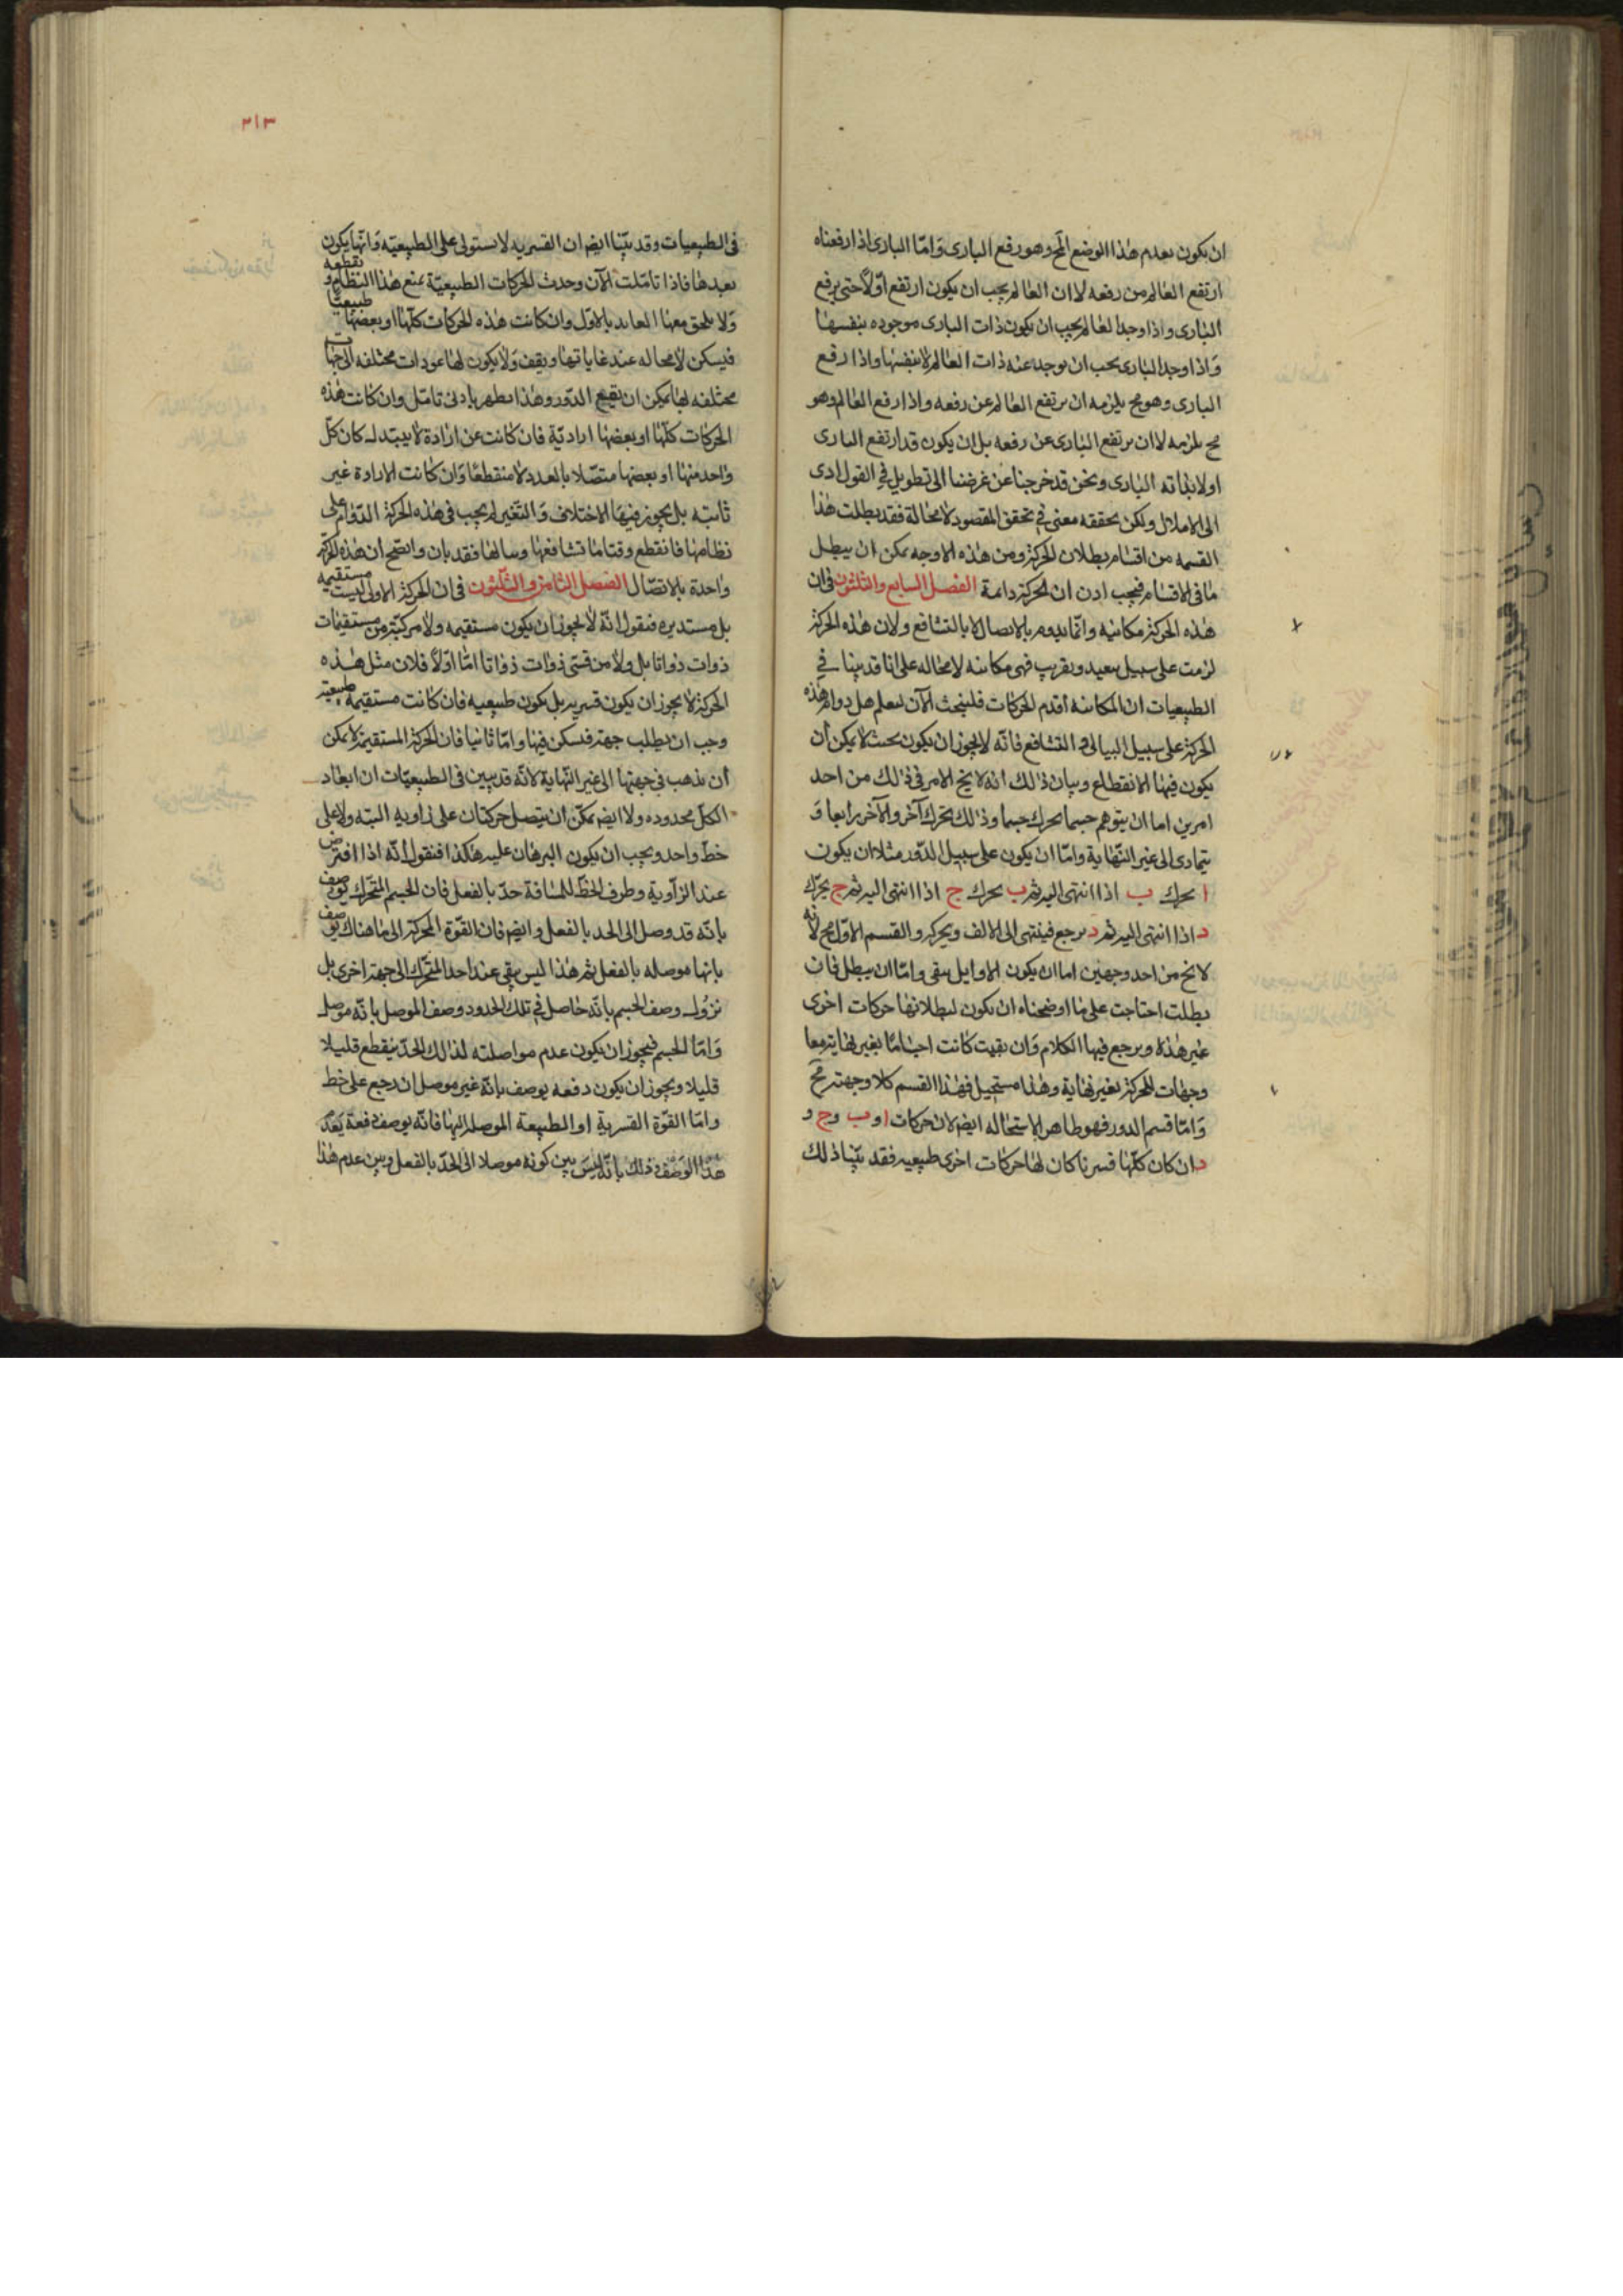 ان يكون بعدم هذا الوضع المح وهو رفع البارى وَامّا البارى اذا رفعناه
ارتفع العالم من رفعه لا ان العالم يجب ان يكون ارتفع اوّلاً حتى يرفع
البارى واذا وجد العالم يجب ان يكون ذات البارى موجوده بنفسها
وَاذا وجد البارى يجب ان يوجد عنه ذات العالم لا بنفسها واذا رفع
البارى وهو مح يلزمه ان يرتفع العالم عن رفعه واذا رفع العالم وهو
مح يلزمه لا ان يرتفع البارى عن رفعه بل ان يكون قد ارتفع البارى
اولا بذاته البارى ونحن قد خرجنا عن غرضنا الى تطويل فى القول ادى
الى الاملال ولكن بحققه معنى فى تحقق المقصود لا محالة فقد بطلت هذا
القسمه من اقسام بطلان الحركة ومن هذه الاوجه يمكن ان يبطل
ما فى الاقسام فيجب اذن ان الحركة دائمة الفصل السابع والثلثون فى ان
هذه الحركة مكانيه وانّما يدوم بالاتصال لا بالتشافع ولان هذه الحركة
لزمت على سبيل بعيد وتقريب فهى مكانيه لا محاله على انا قد بينا فى
الطبيعيات ان المكانيه أقدم الحركات فلنبحث الآن لنعلم هل دوام هذه
الحركة على سبيل التتالى و التشافع فانّه لا يجوز ان يكون بحيث لا يمكن أن
يكون فيها الانقطاع وبيان ذلك انه لا يخ الامر فى ذلك من احد
امرين اما ان يتوهم جسما يحرك جسما وذلك يحرك آخر والآخر رابعا وَ
يتمادى الى غير النّهاية وامّا ان يكون على سبيل الدّور مثلا ان يكون
ا يحرك ب اذا انتهى اليه ثم ب يحرك ج اذا انتهى اليه ثم ج يحرّك
د اذا انتهى اليه ثم د يرجع فينتهى الى الالف ويحركه والقسم الاوّل مح لانه
لا يخ من احد وجهين اما ان يكون الاوايل يبقى وامّا ان يبطل فان
بطلت احتاجت على ما اوضحناه ان يكون لبطلانها حركات اخرى
غير هذه ويرجع فيها الكلام وَان بقيت كانت اجسامًا بغير نهاية معا
وجهات للحركة بغير نهاية وهذا مستحيل فهذا القسم كلا وجهته مح
وَامّا قسم الدور فهو ظاهر الاستحاله ايضا لان حركات ا و ب و ج و
د ان كان كلّها قسريا كان لها حركات اخرى طبيعيه فقد بيّنا ذلك
٢١٣
فى الطبيعيات وقد بيّنا ايضا ان القسريه لا يستولى على الطبيعيّه وَانّها يكون
بعدها فاذا تامّلت الآن وجدت الحركات الطبيعيّة يمنع هذا النظام و تقطعه
وَلا يلحق معها العايد بالاوّل وان كانت هذه الحركات كلّها او بعضها طبيعيّا
فيسكن لا محاله عند غاياتها ويقف وَلا يكون لها عودات مختلفه الى جهات
مختلفه لها يمكن ان يقع الدّور وهذا يظهر بادنى تامّل وان كانت هذه
الحركات كلّها او بعضها اراديّة فان كانت عن ارادة لا يبتدل كان كلّ
واحد منها او بعضها متصّلا بالعدد لا منقطعًا وَان كانت الارادة غير
ثابته بل يجوز فيها الاختلاف وَالتغير لم يجب فى هذه الحركة الدّوام على
نظامها فانقطع وقتا ما تشافعها وسالها فقد بان واتضح ان هذه الحركة
واحدة بالاتصّال الفصل الثامن والثلثون فى ان الحركة الاولى ليست مستقيمه
بل مستديره فنقول انّه لا يجوز ان يكون مستقيمه ولا مركبّة من مستقيمات
ذوات ذواتا بل ولا من قسى ذوات ذواتا امّا اوّلاً فلان مثل هذه
الحركة لا يجوز ان يكون قسريه بل يكون طبيعيه فان كانت مستقيمة طبيعيّة
وجب ان يطلب جهة فسكن فيها وامّا ثانيا فان الحركة المستقيمة لا يمكن
أن يذهب فى جهتها الى غير النّهاية لانّه قد يبين فى الطبيعيّات ان ابعاد
الكلّ محدوده ولا ايضا يمكن ان يتصل حركتان على زاويه البته ولا على
خطّ واحد ويجب ان يكون البرهان عليه هكذا فنقول أنّه اذا افترض
عند الزآوية وطرف الخطّ للمسافة حدّ بالفعل فان الجسم المتحّرك يوصف
بانّه قد وصل الى الحد بالفعل وايضا فان القوّة المحركة الى ما هناك يوصف
بانها موصله بالفعل ثم هذا ليس يبقى عند احد المتحّرك الى جهة اخرى بل
يزول وصف الجسم بانّه حاصل فى تلك الحدود وصف الموصل بانّه موصل
وَامّا الجسم فيجوز ان يكون عدم مواصلته لذلك الحدّ ينقطع قليلا
قليلا ويجوز ان يكون دفعه يوصف بانّه غير موصل ان رجع على خط
وامّا القوّة القسرية او الطبيعة الموصله اليها فانّه يوصف دفعة بعدم
هذا الوصف وذلك بانّه ليس بين كونه موصلا الى الحدّ بالفعل وبين عدم هذا